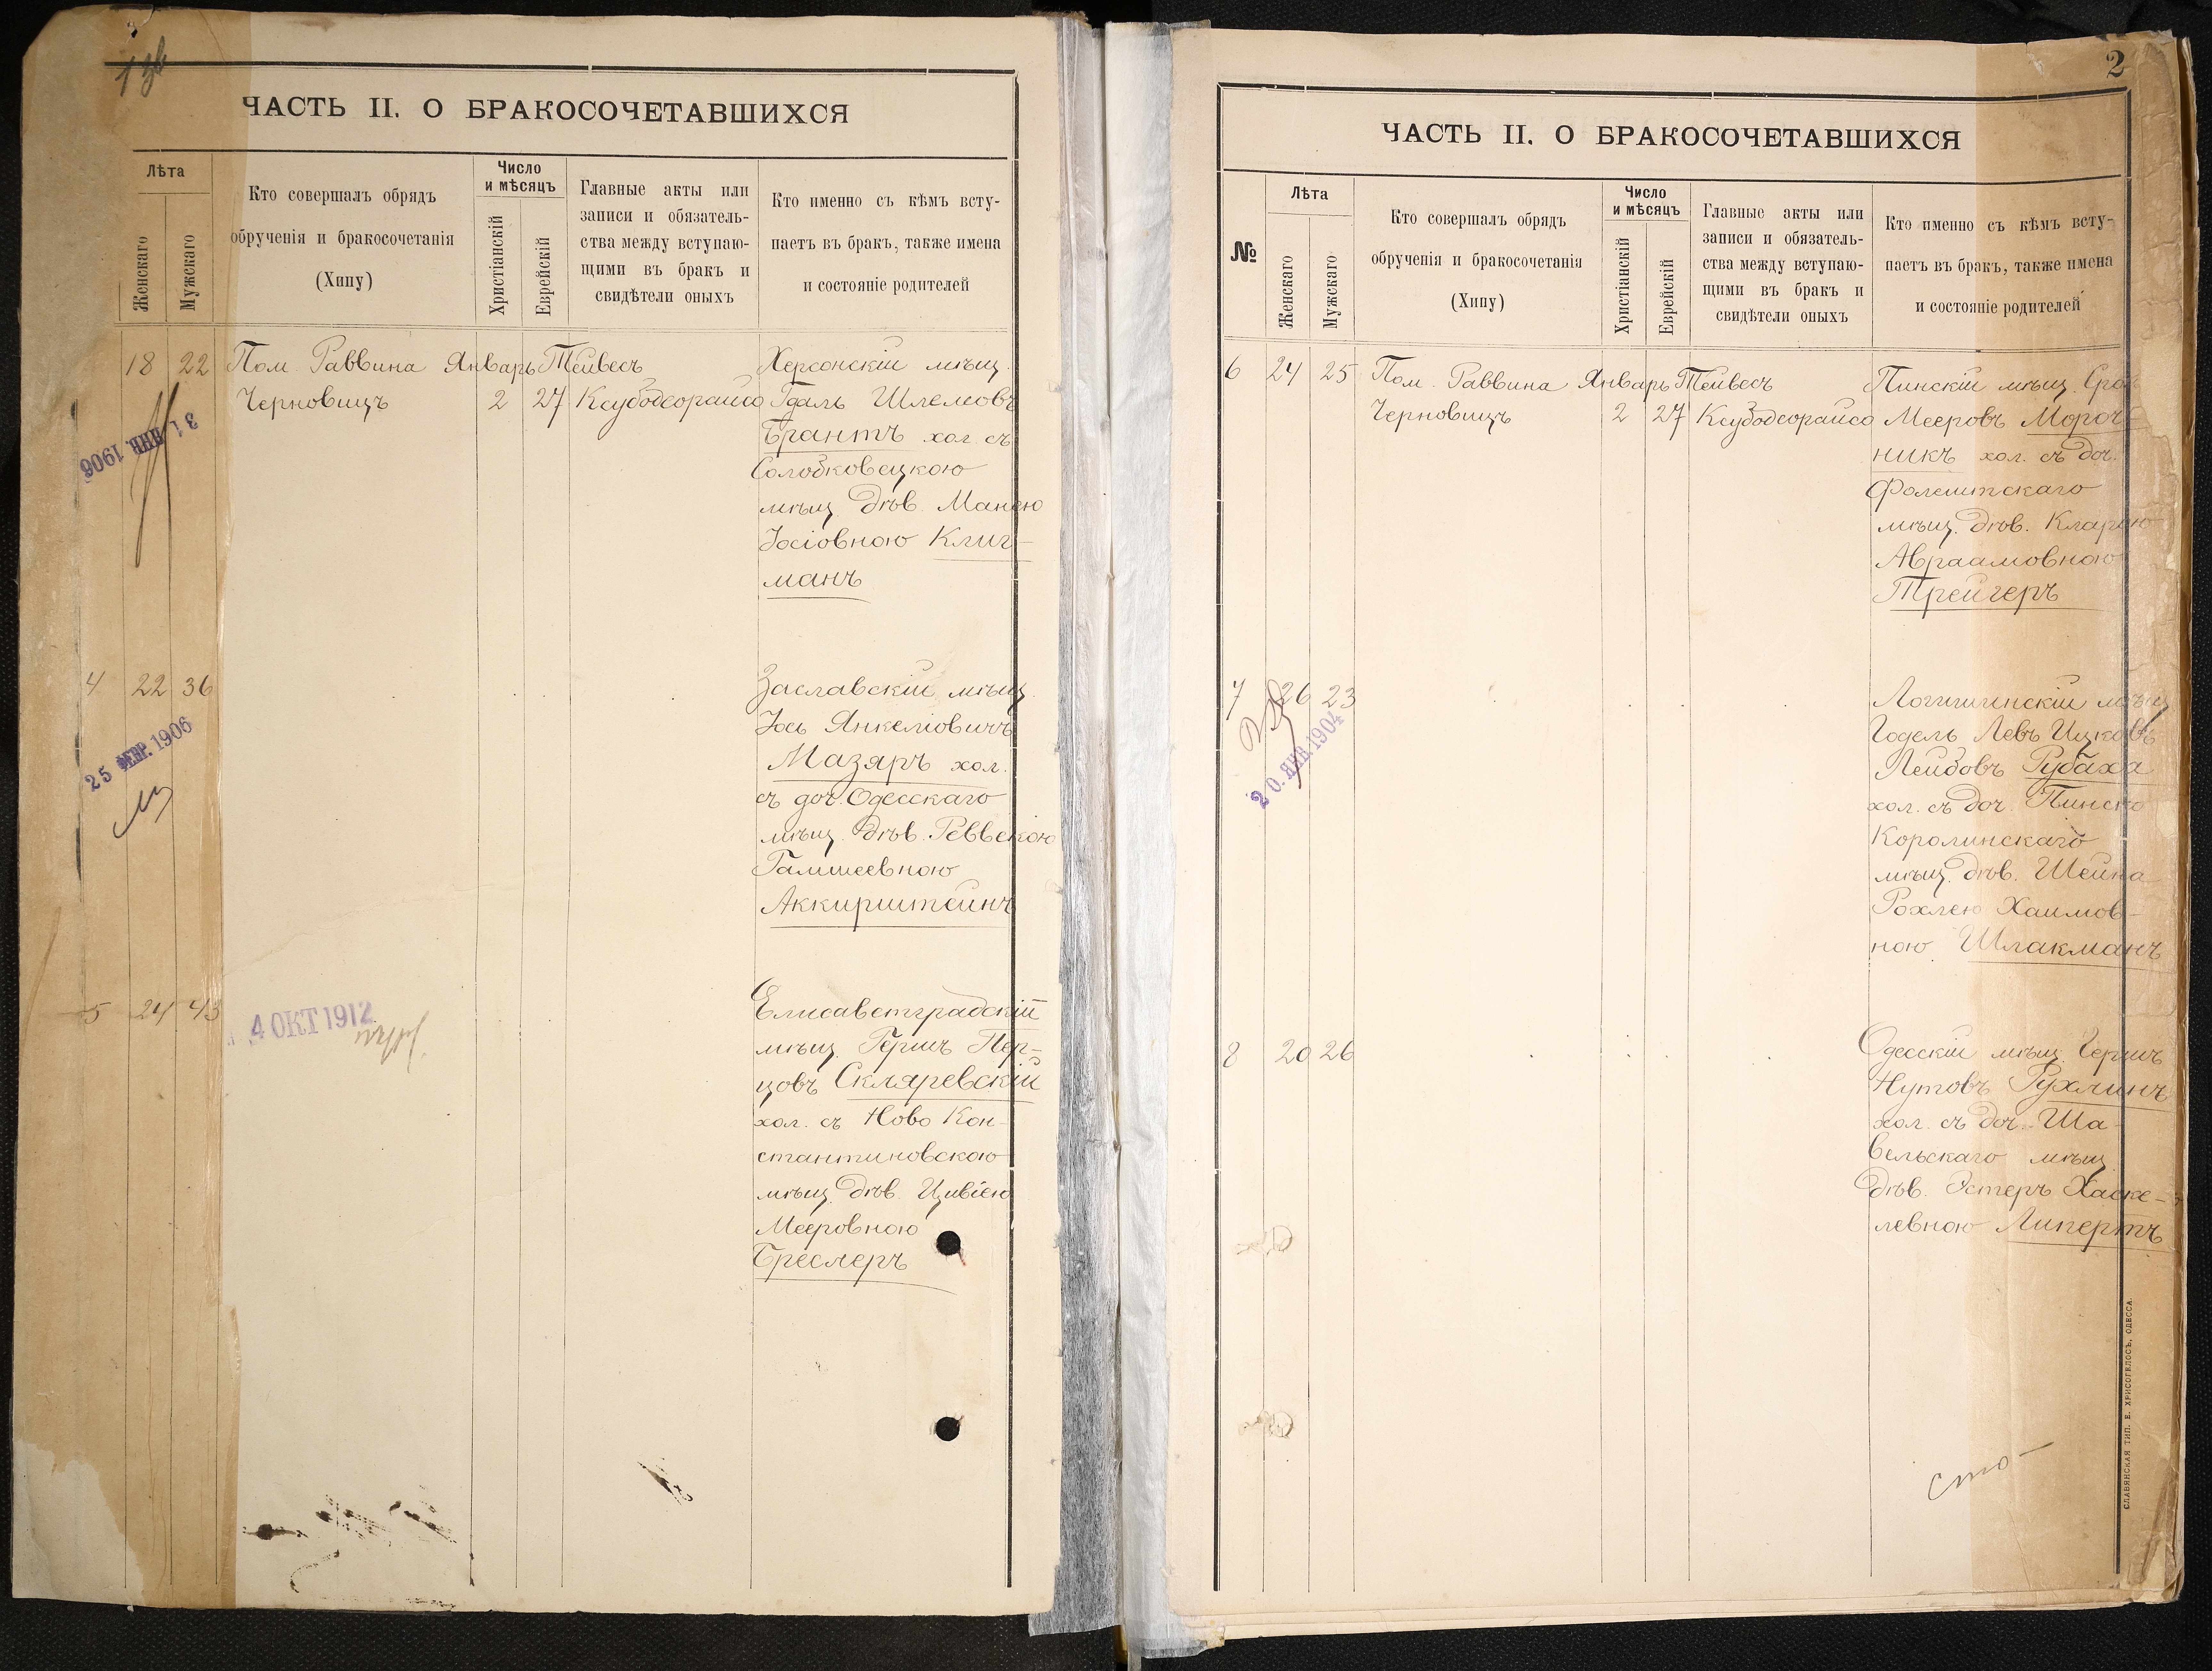 ЧАСТЬ II. О БРАКОСОЧЕТАВШИХСЯ
Лѣта
Женскаго
Мужскаго
Кто совершалъ обрядъ
обрученія и бракосочетанія
(Хипу)
Число
и мѣсяцъ
Христіанскій
Еврейскій
Главные акты или
записи и обязатель-
ства между вступаю-
щими въ бракъ и
свидѣтели оныхъ
Кто именно съ кѣмъ всту-
паетъ въ бракъ, также имена
и состояніе родителей
18 22 Пом. Раввина Январь Тейвесъ Херсонскій мѣщ.
Черновицъ 2 27 Ксубодеорайсо Гдаль Шлемовъ
31 ЯНВ. 1906
Брантъ хол. съ
Солобковецкою
мѣщ. дѣв. Манею
Іосіовною Клиг-
манъ
4 22 36 Заславскій мѣщ.
25 ФЕВР. 1906
Іось Янкеліовичъ
Мазяръ хол.
съ доч. Одесскаго
мѣщ. дѣв. Реввекою
Гамшеевною
Аккирштейнъ
5 24 43 Елисаветградскій
4 ОКТ 1912
мѣщ. Гершъ Пер-
цовъ Скляревскій
хол. съ Ново Кон-
стантиновскою
мѣщ. дѣв. Цивіею
Мееровною
Бреслеръ
2
ЧАСТЬ II. О БРАКОСОЧЕТАВШИХСЯ
№
Лѣта
Женскаго
Мужскаго
Кто совершалъ обрядъ
обрученія и бракосочетанія
(Хипу)
Число
и мѣсяцъ
Христіанскій
Еврейскій
Главные акты или
записи и обязатель-
ства между вступаю-
щими въ бракъ и
свидѣтели оныхъ
Кто именно съ кѣмъ всту-
паетъ въ бракъ, также имена
и состояніе родителей
6 24 25 Пом. Раввина Январь Тейвесъ Пинскій мѣщ.
Черновицъ 2 27 Ксубодеорайсо Мееровъ Мороч-
никъ хол. съ доч.
Фалештскаго
мѣщ. дѣв. Кларою
Авраамовною
Трейгеръ
7 26 23 Логишинскій мѣщ.
20. ЯНВ. 1904
Годель Левъ Ицковъ
Лейбовъ Рубаха
хол. съ доч. Пинско
Королинскаго
мѣщ. дѣв. Шейна
Рохлею Хаимов-
ною Шлакманъ
8 20 26 Одесскій мѣщ. Гершъ
Нутовъ Рухлинъ
хол. съ доч. Ша-
вельскаго мѣщ.
дѣв. Эстеръ Хаске-
левною Липертъ
сто-
СЛАВЯНСКАЯ ТИП. Е. ХРИСОГЕЛОСЪ, ОДЕССА.